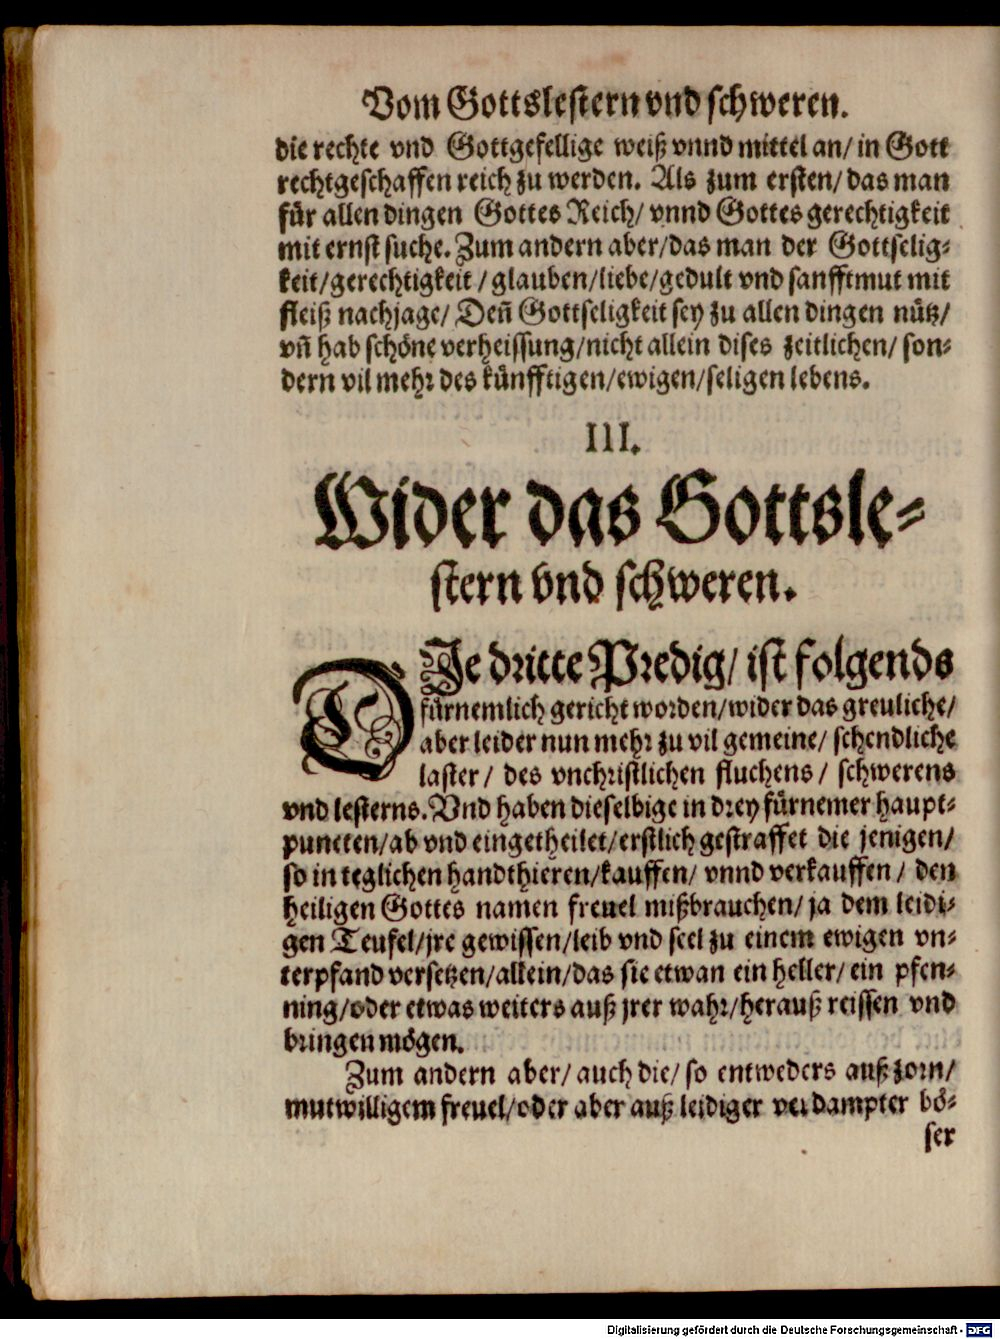 Vom Gottslestern vnd schweren.
die rechte vnd Gottgefellige weiß vnnd mittel an/ in Gott
rechtgeschaffen reich zu werden. Als zum ersten/ das man
für allen dingen Gottes Reich/ vnnd Gottes gerechtigkeit
mit ernst suche. Zum andern aber/das man der Gottselig-
keit/gerechtigkeit / glauben/liebe/gedult vnd sanfftmut mit
fleiß nachjage/ Deñ Gottseligkeit sey zu allen dingen nütz/
vñ hab schöne verheissung/nicht allein dises zeitlichen/ son-
dern vil mehr des künfftigen/ewigen/seligen lebens.
III.
Wider das Gottsle-
stern vnd schweren.
DIe dritte Predig/ ist folgends
fürnemlich gericht worden/wider das greuliche/
aber leider nun mehr zu vil gemeine/ schendliche
laster / des vnchristlichen fluchens / schwerens
vnd lesterns. Vnd haben dieselbige in drey fürnemer haupt-
puncten/ab vnd eingetheilet/erstlich gestraffet die jenigen/
so in teglichen handthieren/kauffen/ vnnd verkauffen / den
heiligen Gottes namen freuel mißbrauchen/ ja dem leidi-
gen Teufel/jre gewissen/leib vnd seel zu einem ewigen vn-
terpfand versetzen/allein/das sie etwan ein heller/ ein pfen-
ning/oder etwas weiters auß jrer wahr/herauß reissen vnd
bringen mögen.
Zum andern aber/ auch die/ so entweders auß zorn/
mutwilligem freuel/oder aber auß leidiger verdampter bö-
ser
Digitalisierung gefördert durch die Deutsche Forschungsgemeinschaft - DFG